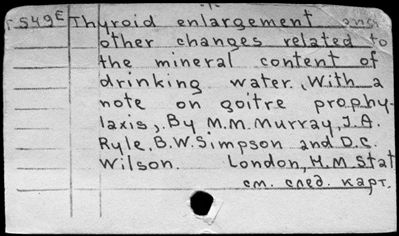 S49E Thyroid enlargement and
other changes related to
the mineral content of
drinking water. With a
note on goitre prophy-
laxis, By M.M. Murray, J.A.
Ryle, B.W. Simpson and D.C.
Wilson. London, H.M Stat
см. след. карт.